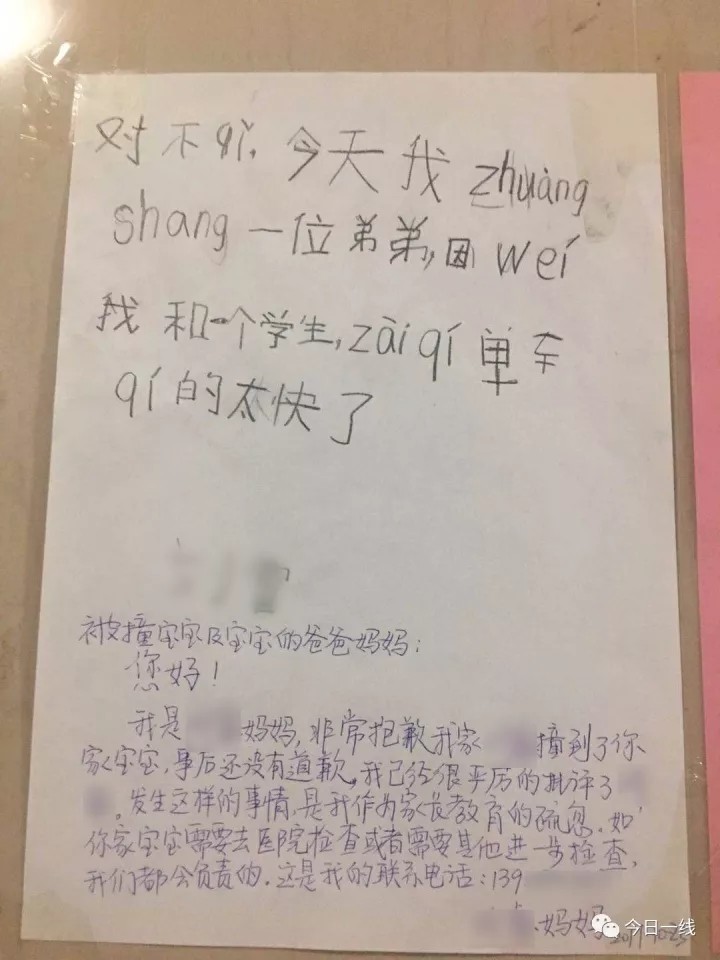 对不qǐ，今天我zhuàng
shang一位弟弟，因wéi
我和一个学生，zài qí单车
qí的太快了
被撞宝宝及宝宝的爸爸妈妈：
您好！
我是 妈妈，非常抱歉我家 撞到了你
家宝宝，事后还没有道歉。我已经很严厉的批评了
。发生这样的事情，是我作为家长教育的疏忽，如
你家宝宝需要去医院检查或者需要其他进一步检查，
我们都会负责的。这是我的联系电话：139
妈妈
今日一线